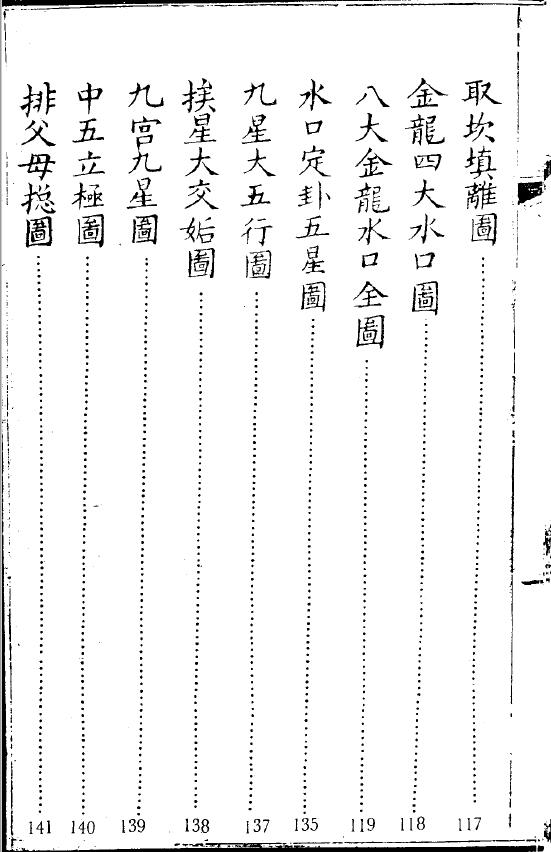 取坎填離圖 117
金龍四大水口圖 118
八大金龍水口全圖 119
水口定卦五星圖 135
九星大五行圖 137
挨星大交姤圖 138
九宮九星圖 139
中五立極圖 140
排父母揔圖 141